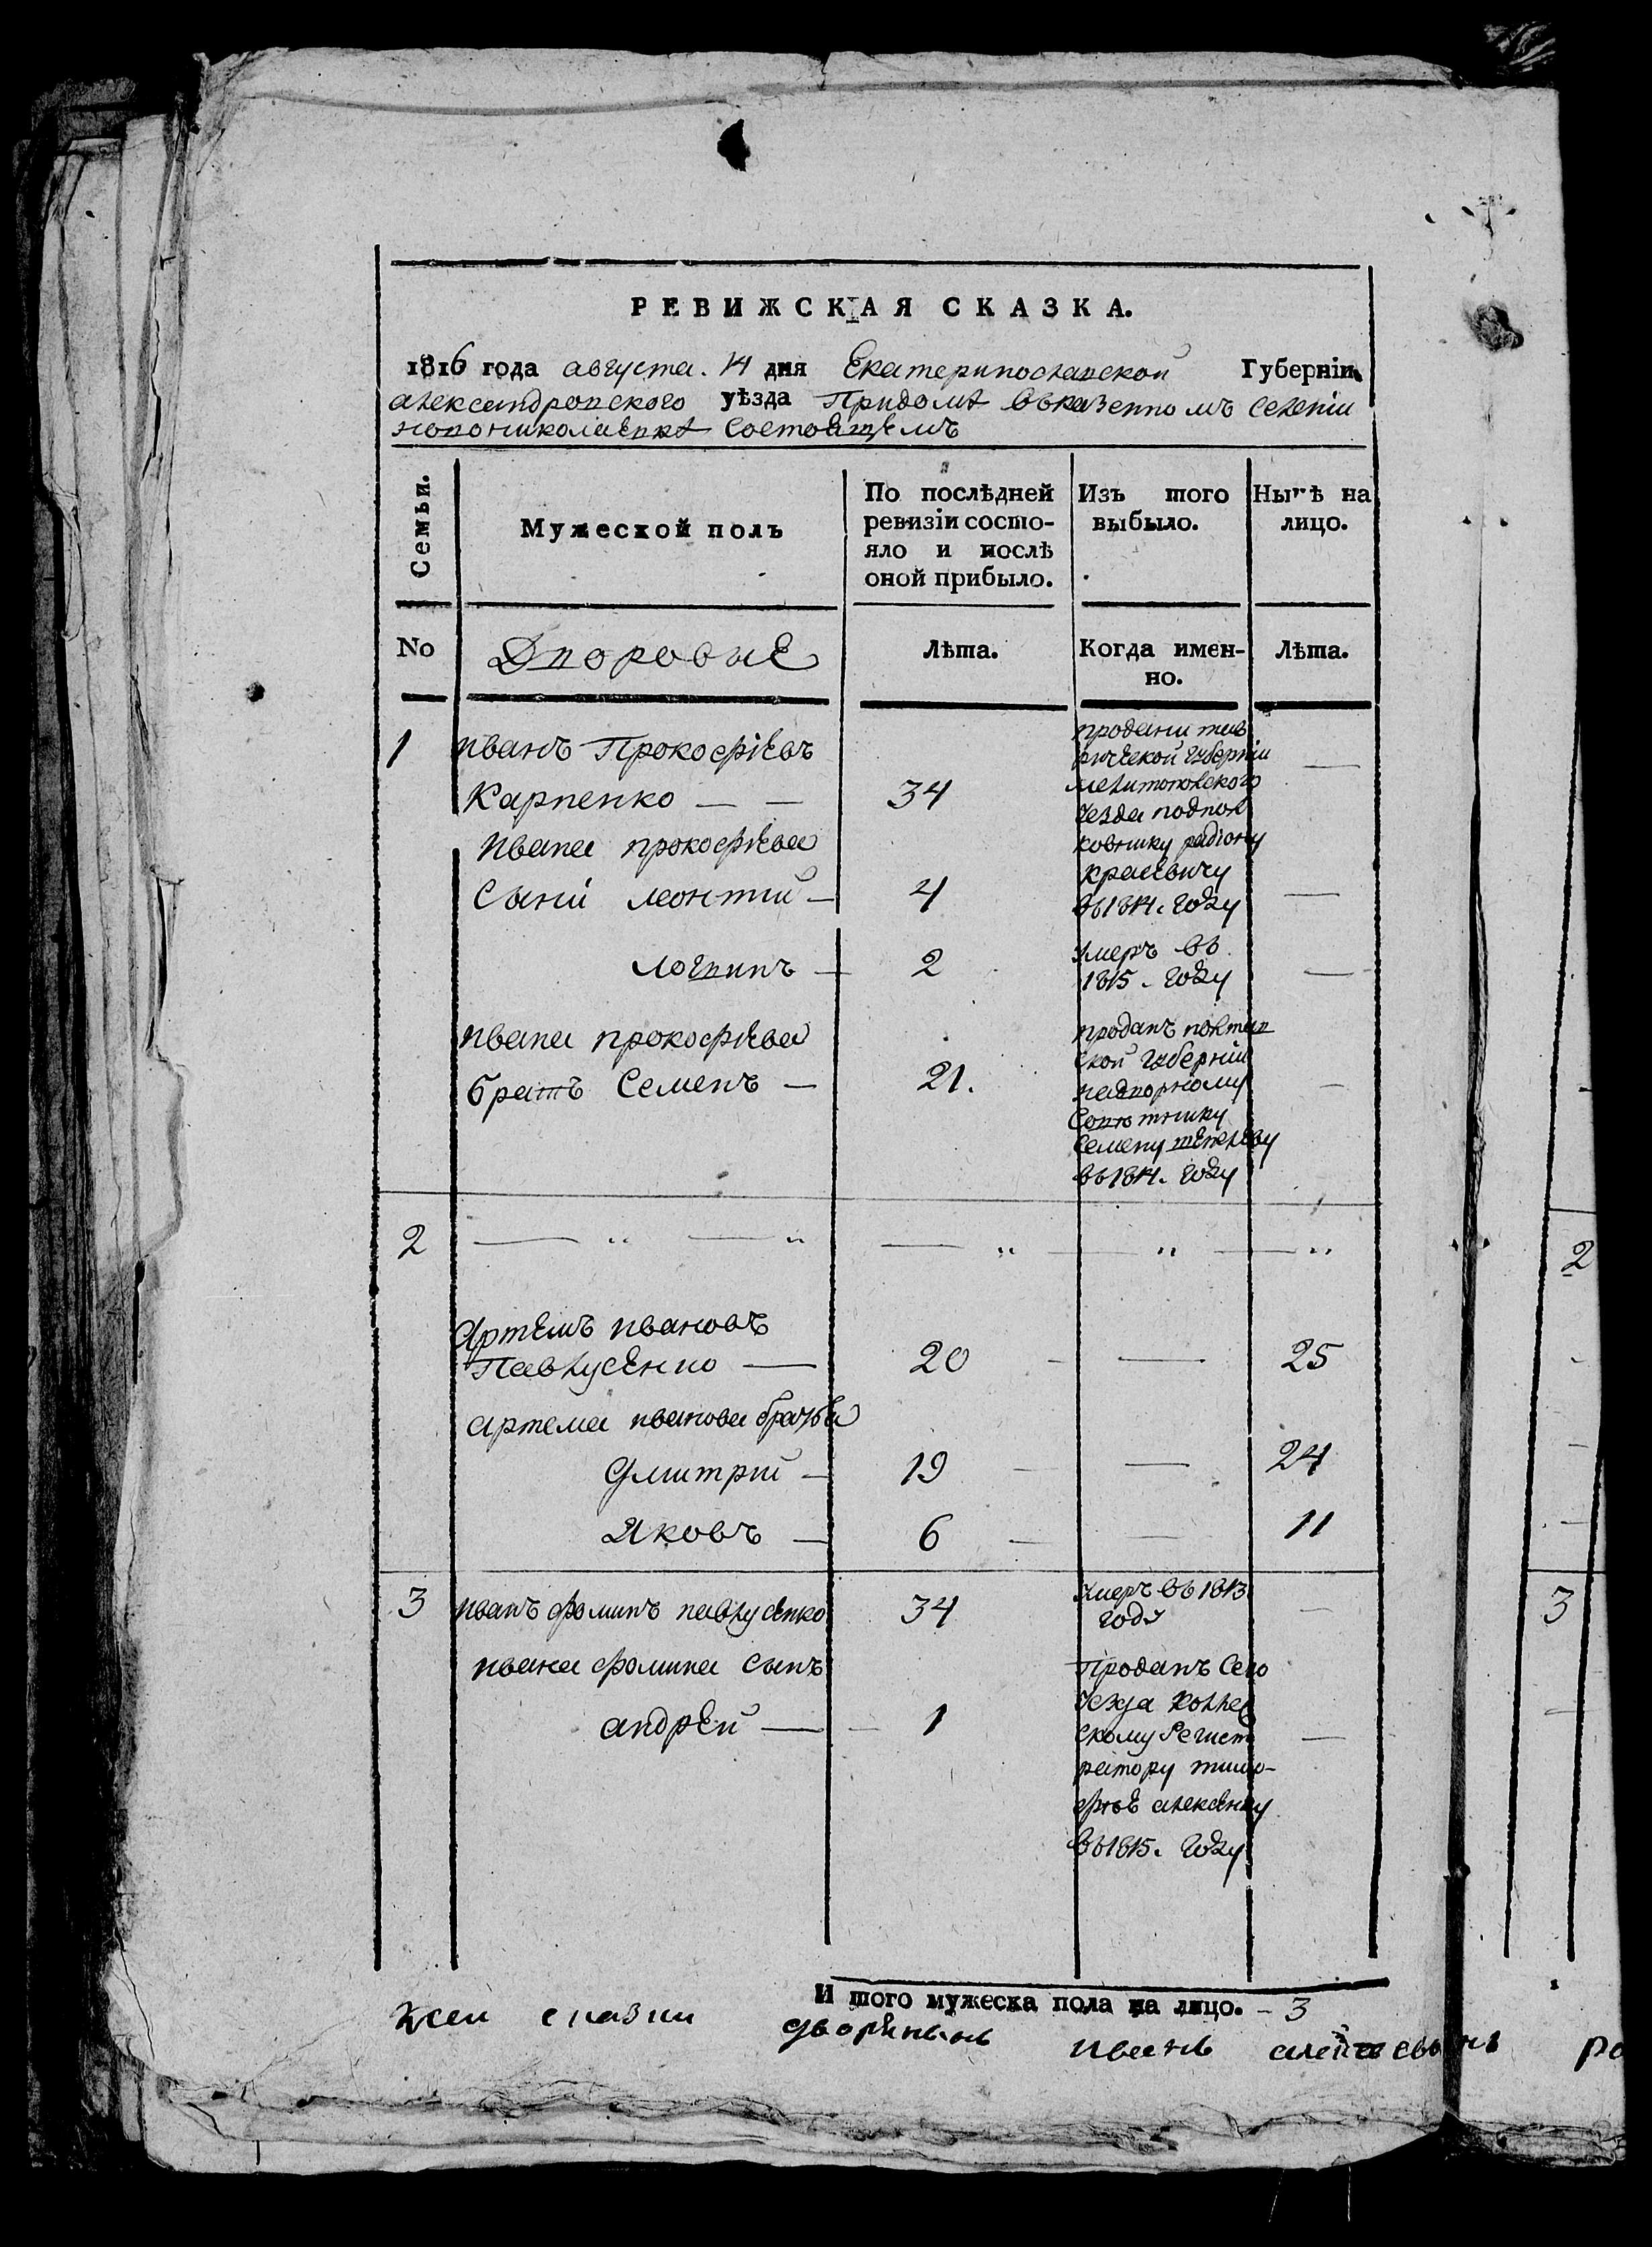 РЕВИЖСКАЯ СКАЗКА.
1816 года августа. 14 дня Екатеринославской Губерніи
александровского уѣзда При доме в казенномъ селении
новониколаевке состоящемъ
Семьи.
Мужеской полъ
По послѣдней
ревизіи состо-
яло и послѣ
оной прибыло.
Изъ того
выбыло.
Нынѣ на
лицо.
No
Дворовые
Лѣта.
Когда имен-
но.
Лѣта.
1 иванъ Прокофіевъ
Карпенко — — 34 —
ивана прокофіева
сыни леонтии — 4 —
продани тав
рической губерніи
мелитополского
уезда подпол
ковнику
краевичу
въ 1814. году
логвинъ — 2 —
умеръ въ
1815. году
ивана прокофіева
братъ Семенъ — 21. —
проданъ полтав
ской губерніи
надворному
советнику
Семену
въ 1814. году
2 — „ — „ — „ — „ — „
Артемъ ивановъ
Павлусенко — 20 — 25
артема иванова братья
Дмитрий — 19 — 24
Яковъ — 6 — 11
3 иванъ фоминъ павлусенко 34 —
умеръ въ 1813
году
ивана фомина сынъ
андрей — 1 —
Проданъ сего
уезда коллеж
скому регист
ратору тимо-
фѣе алексенку
въ 1815. году
И того мужеска пола на лицо. – 3
сказки дворянинъ иванъ
2
3